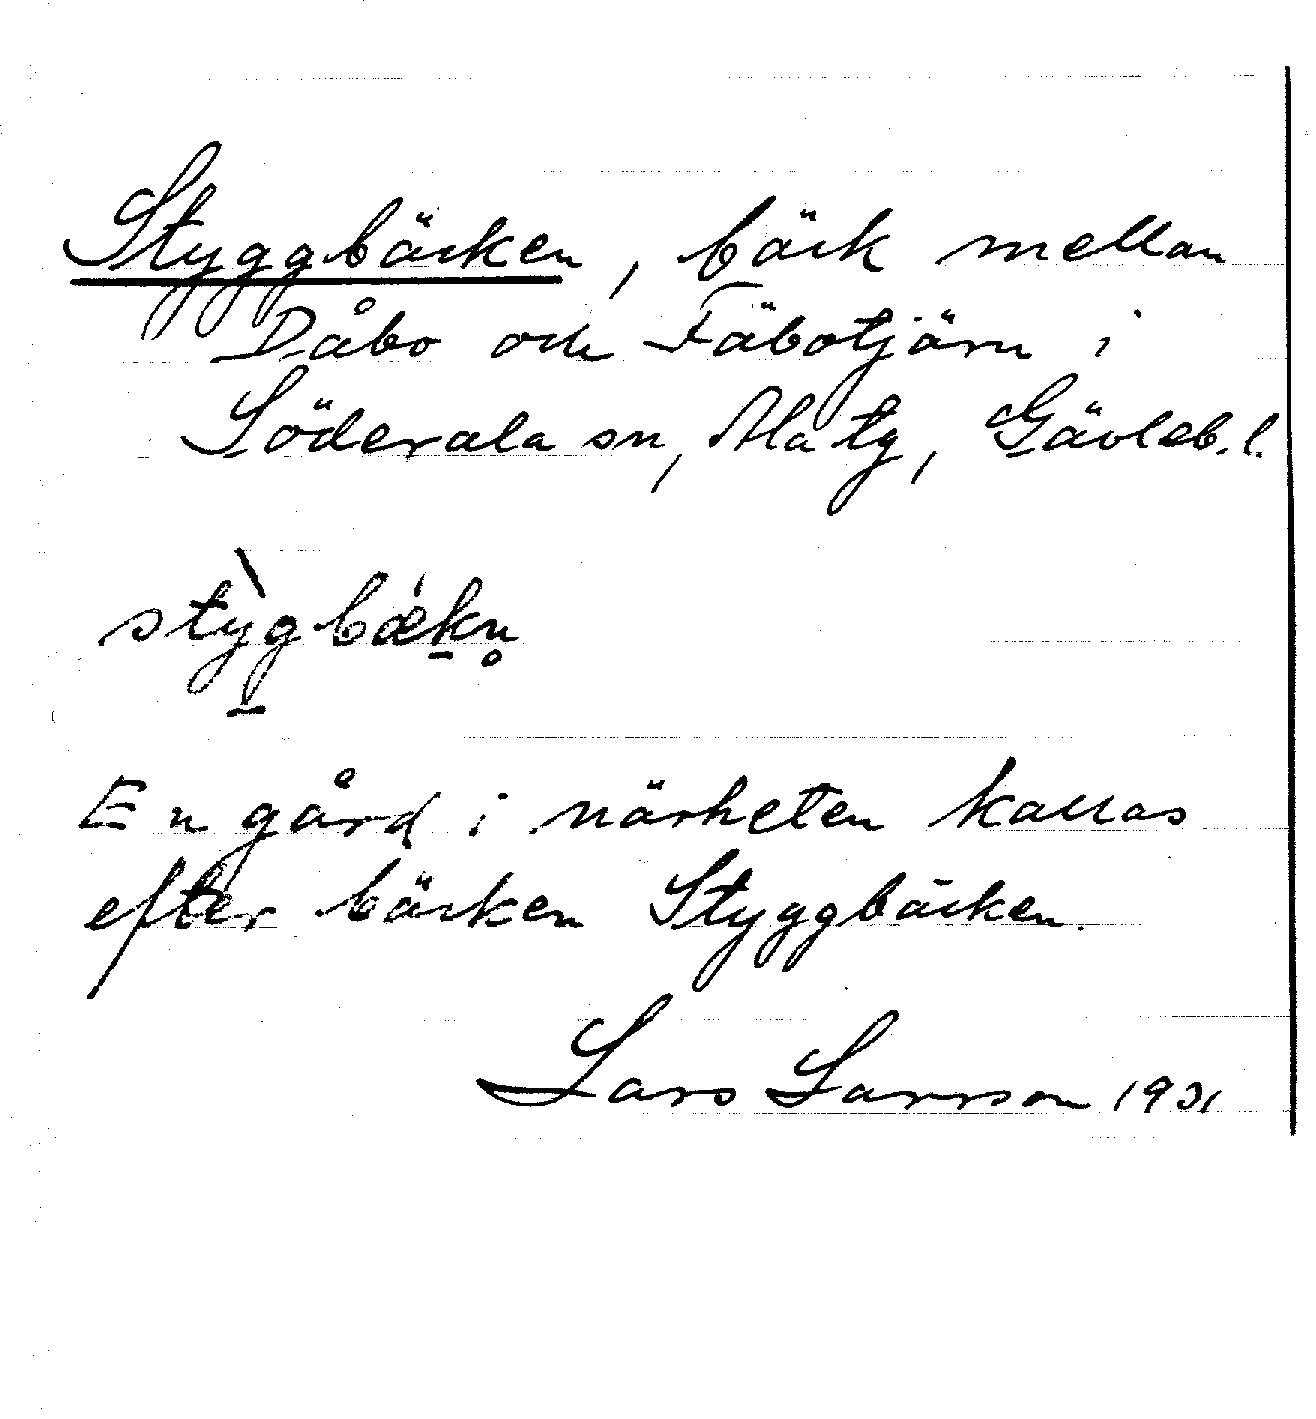 Styggbäcken, bäck mellan
Dåbo och Fäbotjärn i
Söderala sn, Ala tg, Gävleb. l.
stỳgbǽkn̥
En gård i närheten kallas
efter bäcken Styggbäcken.
Lars Larsson 1931